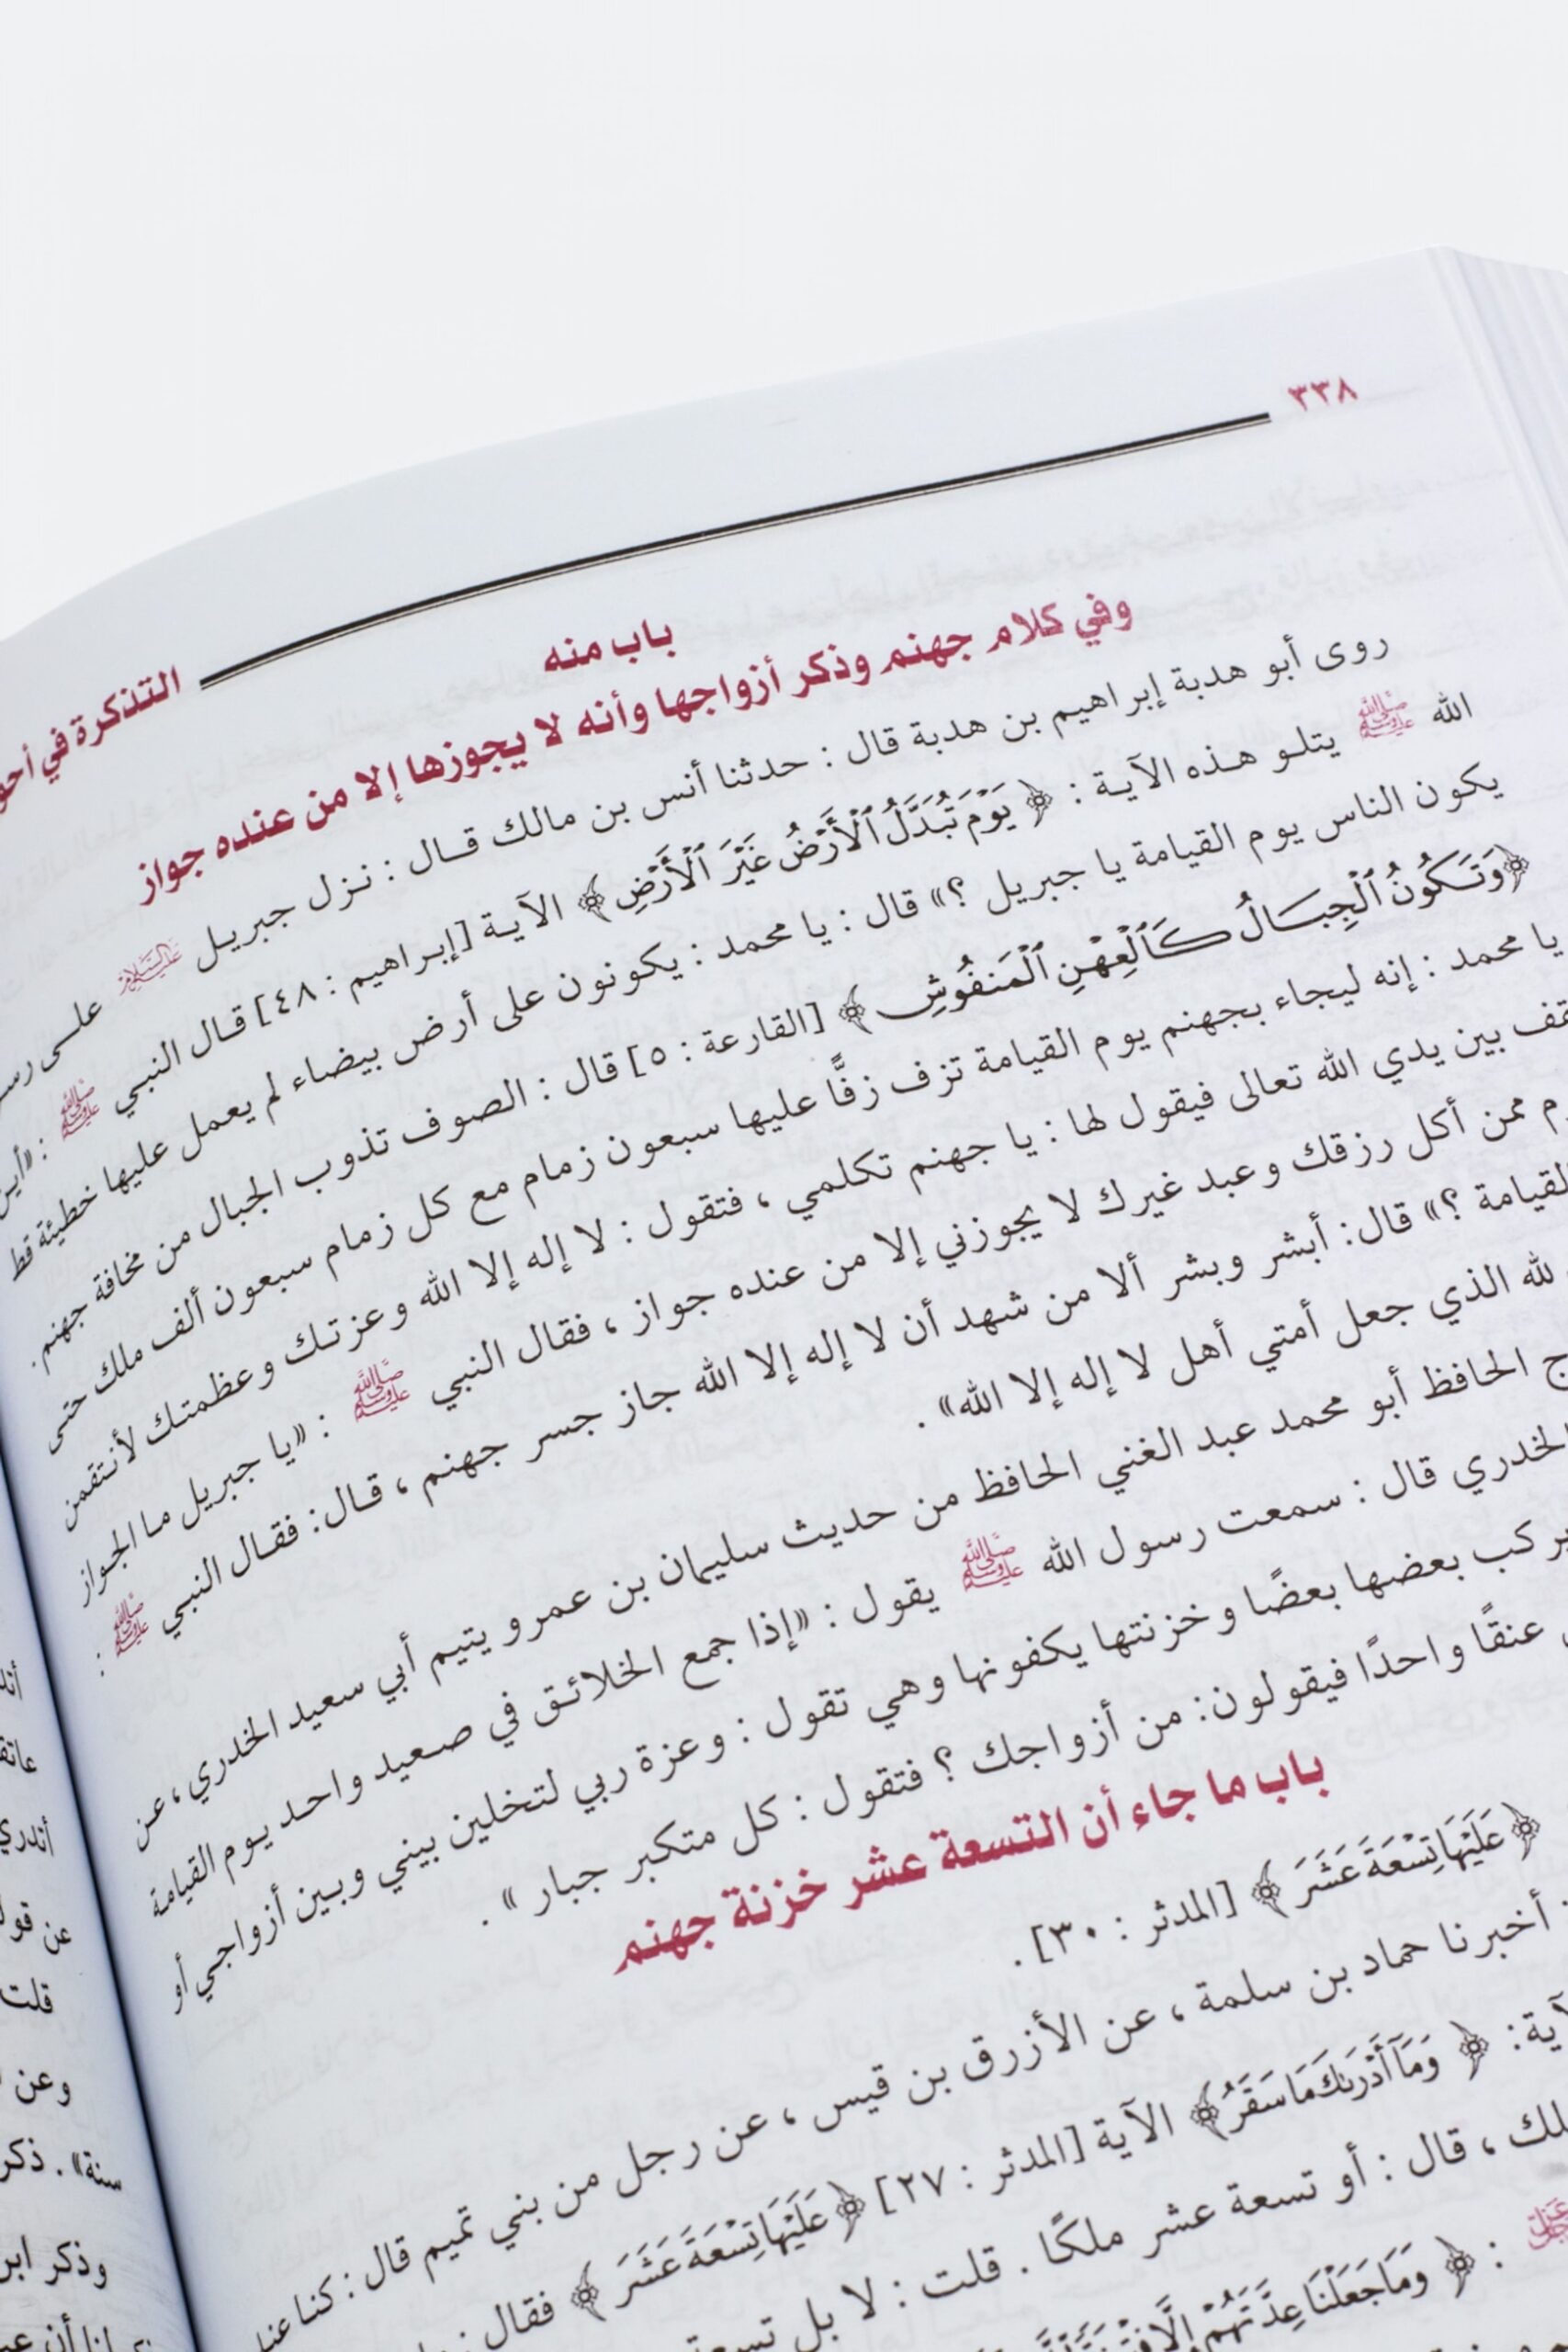 ٣٣٨
التذكرة في
باب منه
وفي كلام جهنم وذكر أزواجها وأنه لا يجوزها إلا من عنده جواز
روى أبو هدبة إبراهيم بن هدبة قال : حدثنا أنس بن مالك قال : نزل جبريل عليه السلام على
الله ﷺ يتلو هذه الآية : ﴿ يَوْمَ تُبَدَّلُ ٱلْأَرْضُ غَيْرَ ٱلْأَرْضِ ﴾ الآية [إبراهيم : ٤٨] قال النبي ﷺ : «أين
يكون الناس يوم القيامة يا جبريل ؟» قال : يا محمد : يكونون على أرض بيضاء لم يعمل عليها خطيئة قط
﴿وَتَكُونُ ٱلْجِبَالُ كَٱلْعِهْنِ ٱلْمَنفُوشِ ﴾ [القارعة : ٥] قال : الصوف تذوب الجبال من مخافة جهنم .
يا محمد : إنه ليجاء بجهنم يوم القيامة تزف زفًّا عليها سبعون زمام مع كل زمام سبعون ألف ملك حتى
بين يدي الله تعالى فيقول لها : يا جهنم تكلمي ، فتقول : لا إله إلا الله وعزتك وعظمتك لأنتقمن
ممن أكل رزقك وعبد غيرك لا يجوزني إلا من عنده جواز ، فقال النبي ﷺ : «يا جبريل ما الجواز
القيامة ؟» قال: أبشر وبشر ألا من شهد أن لا إله إلا الله جاز جسر جهنم ، قال: فقال النبي ﷺ :
لله الذي جعل أمتي أهل لا إله إلا الله» .
الحافظ أبو محمد عبد الغني الحافظ من حديث سليمان بن عمرو يتيم أبي سعيد الخدري ، عن
الخدري قال : سمعت رسول الله ﷺ يقول : «إذا جمع الخلائق في صعيد واحد يوم القيامة
يركب بعضها بعضًا وخزنتها يكفونها وهي تقول : وعزة ربي لتخلين بيني وبين أزواجي أو
عنقًا واحدًا فيقولون: من أزواجك ؟ فتقول : كل متكبر جبار » .
باب ما جاء أن التسعة عشر خزنة جهنم
﴿عَلَيْهَا تِسْعَةَ عَشَرَ ﴾ [المدثر : ٣٠] .
: أخبرنا حماد بن سلمة ، عن الأزرق بن قيس ، عن رجل من بني تميم قال : كنا
: ﴿ وَمَآ أَدْرَىٰكَ مَا سَقَرُ ﴾ الآية [المدثر : ٢٧] ﴿عَلَيْهَا تِسْعَةَ عَشَرَ ﴾ فقال :
، قال : أو تسعة عشر ملكًا . قلت : لا بل
: ﴿ وَمَا جَعَلْنَا عِدَّتَهُمْ إِلَّا
عن
قلت
وعن
سنة» . ذكر
وذكر